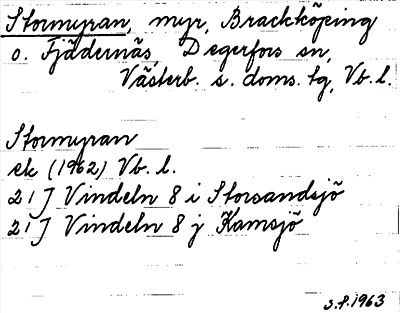 Stormyran, myr, Brackköping
o. Fjädernäs, Degerfors sn,
Västerb. s. doms. tg, Vb. l.
Stormyran
ek (1962) Vb. l.
21 J Vindeln 8 i Storsandsjö
21 J Vindeln 8 j Kamsjö
s.f. 1963